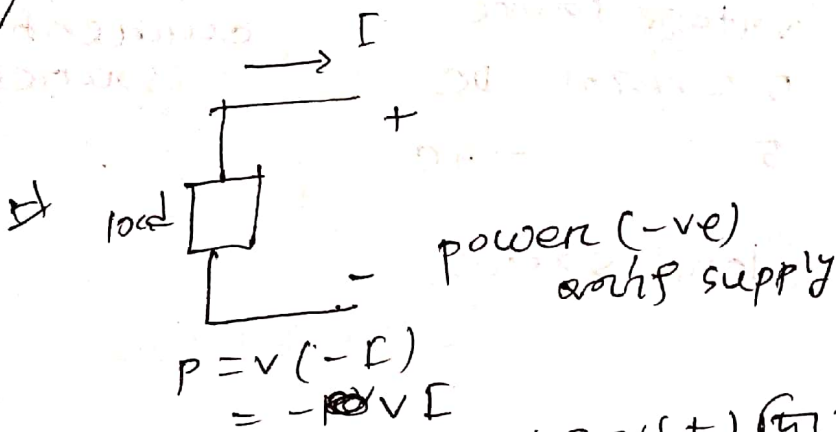 I
+
load
-
power (-ve)
supply
P = V (- I)
= - V I